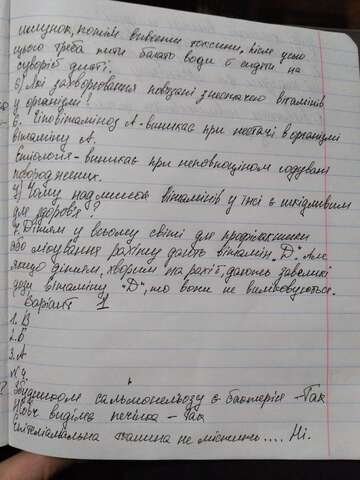 шлунок, потім вивести токсини, після усьо
цього треба пити багато води й сидіти на
суворій дієті.
б) Які захворювання повязані з нестачею вітамінів
у організмі?
б. Гіповітаміноз А - виникає при нестачі в організмі
вітаміну А.
виникає при неповноціном годувані
новороджених.
Чому надлишок вітамінів у їжі є шкідливим
для здоров'я?
Дітям у всьому світі для профілактики
або лікування рахіту дають вітамін "D". Але
якщо дітям, хворим на рахіт, дають завеликі
дозу вітаміну "D", то вони не виліковуються.
Варіант 1
1. В
2. Б
3. А
№ 4.
Збудником сальмонельозу є бактерія - Так
Жовч виділяє печінка - Так
Епітеліамальна тканина не містить .... Ні.